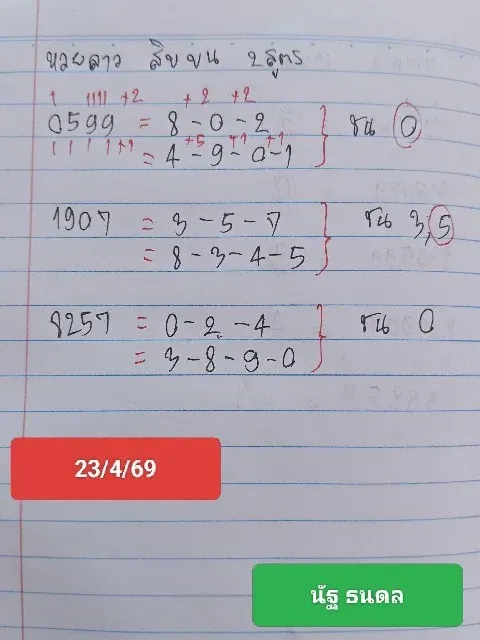 หวยลาว สิบบน 2 สูตร
1 1111 +2 +2 +2
0599 = 8 - 0 - 2 ชน 0
1 1 1 1 +1 +5 +1 +1
= 4 - 9 - 0 - 1
1907 = 3 - 5 - 7 ชน 3,5
= 8 - 3 - 4 - 5
8257 = 0 - 2 - 4 ชน 0
= 3 - 8 - 9 - 0
23/4/69
นัฐ ธนดล